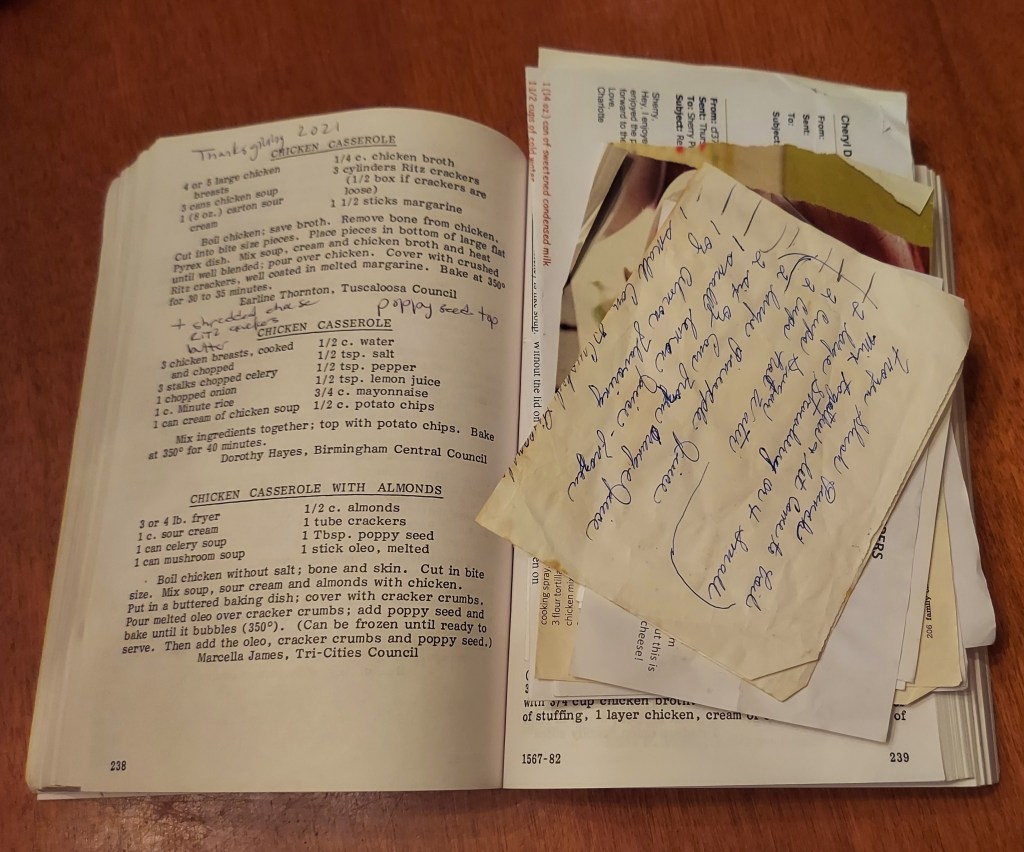 Thanksgiving 2021
CHICKEN CASSEROLE
4 or 5 large chicken
breasts
3 cans chicken soup
1 (8 oz.) carton sour
cream
1/4 c. chicken broth
3 cylinders Ritz crackers
(1/2 box if crackers are
loose)
1 1/2 sticks margarine
Boil chicken; save broth. Remove bone from chicken.
Cut into bite size pieces. Place pieces in bottom of large flat
Pyrex dish. Mix soup, cream and chicken broth and heat
until well blended; pour over chicken. Cover with crushed
Ritz crackers, well coated in melted margarine. Bake at 350°
for 30 to 35 minutes.
Earline Thornton, Tuscaloosa Council
+ shredded cheese
Ritz crackers
butter
poppy seed top
CHICKEN CASSEROLE
3 chicken breasts, cooked
and chopped
3 stalks chopped celery
1 chopped onion
1 c. Minute rice
1 can cream of chicken soup
1/2 c. water
1/2 tsp. salt
1/2 tsp. pepper
1/2 tsp. lemon juice
3/4 c. mayonnaise
1/2 c. potato chips
Mix ingredients together; top with potato chips. Bake
at 350° for 40 minutes.
Dorothy Hayes, Birmingham Central Council
CHICKEN CASSEROLE WITH ALMONDS
3 or 4 lb. fryer
1 c. sour cream
1 can celery soup
1 can mushroom soup
1/2 c. almonds
1 tube crackers
1 Tbsp. poppy seed
1 stick oleo, melted
Boil chicken without salt; bone and skin. Cut in bite
size. Mix soup, sour cream and almonds with chicken.
Put in a buttered baking dish; cover with cracker crumbs.
Pour melted oleo over cracker crumbs; add poppy seed and
bake until it bubbles (350°). (Can be frozen until ready to
serve. Then add the oleo, cracker crumbs and poppy seed.)
Marcella James, Tri-Cities Council
238
Cheryl D
From:
Sent:
To:
Subject:
From:
Sent: Thurs
To: Sherry P
Subject: Re
Sherry,
Hey, I enjoye
enjoyed the p
forward to the
Love,
Charlotte
1 (14 oz) can of sweetened condensed milk
1 1/2 cups of cold water
without the lid on
Frozen Slush Punch
Mix together, let come to boil
2 large Strawberry or 4 small
2 cups Sugar
2 cups Hot Water
2 large Pineapple Juice
1 small can frozen Orange Juice
2 oz Lemon Juice - frozen
1 oz Almon flavoring
1 small can
en on
cooking spray
3 flour tortilla
chicken mix
m
ut this is
cheese!
ERS
with 3/4 cup chicken broth
of stuffing, 1 layer chicken, cream of
of
1567-82
239